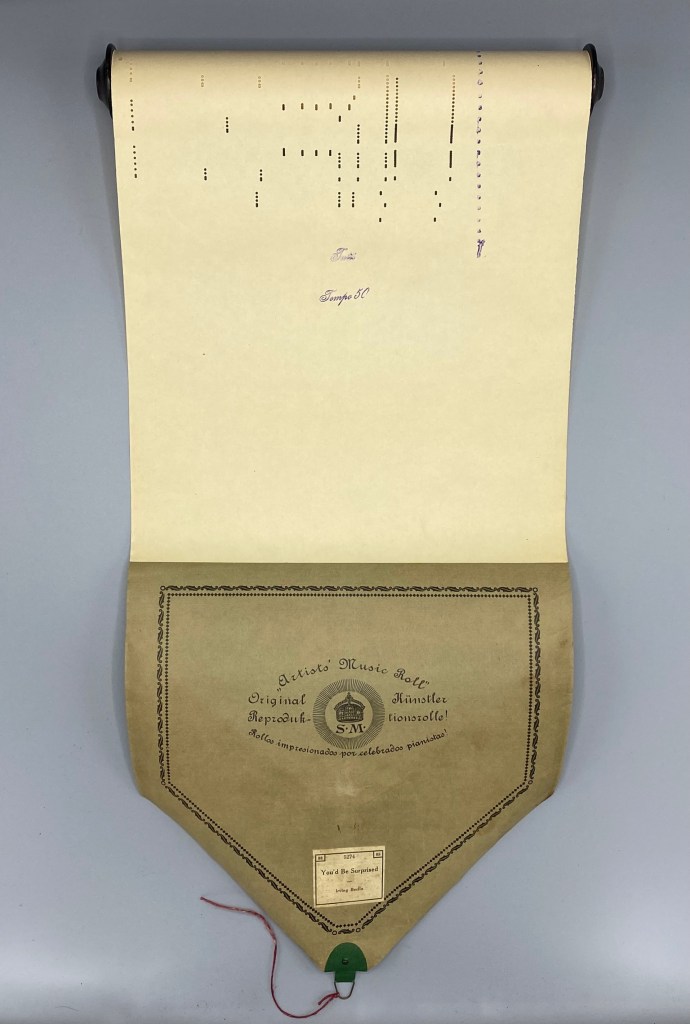 Tempo 50
„Artists' Music Roll"
Original Künstler
Reproduk- tionsrolle!
S·M·
Rollos impresionados por celebrados pianistas!
88 88
You'd Be Surprised
Irving Berlin